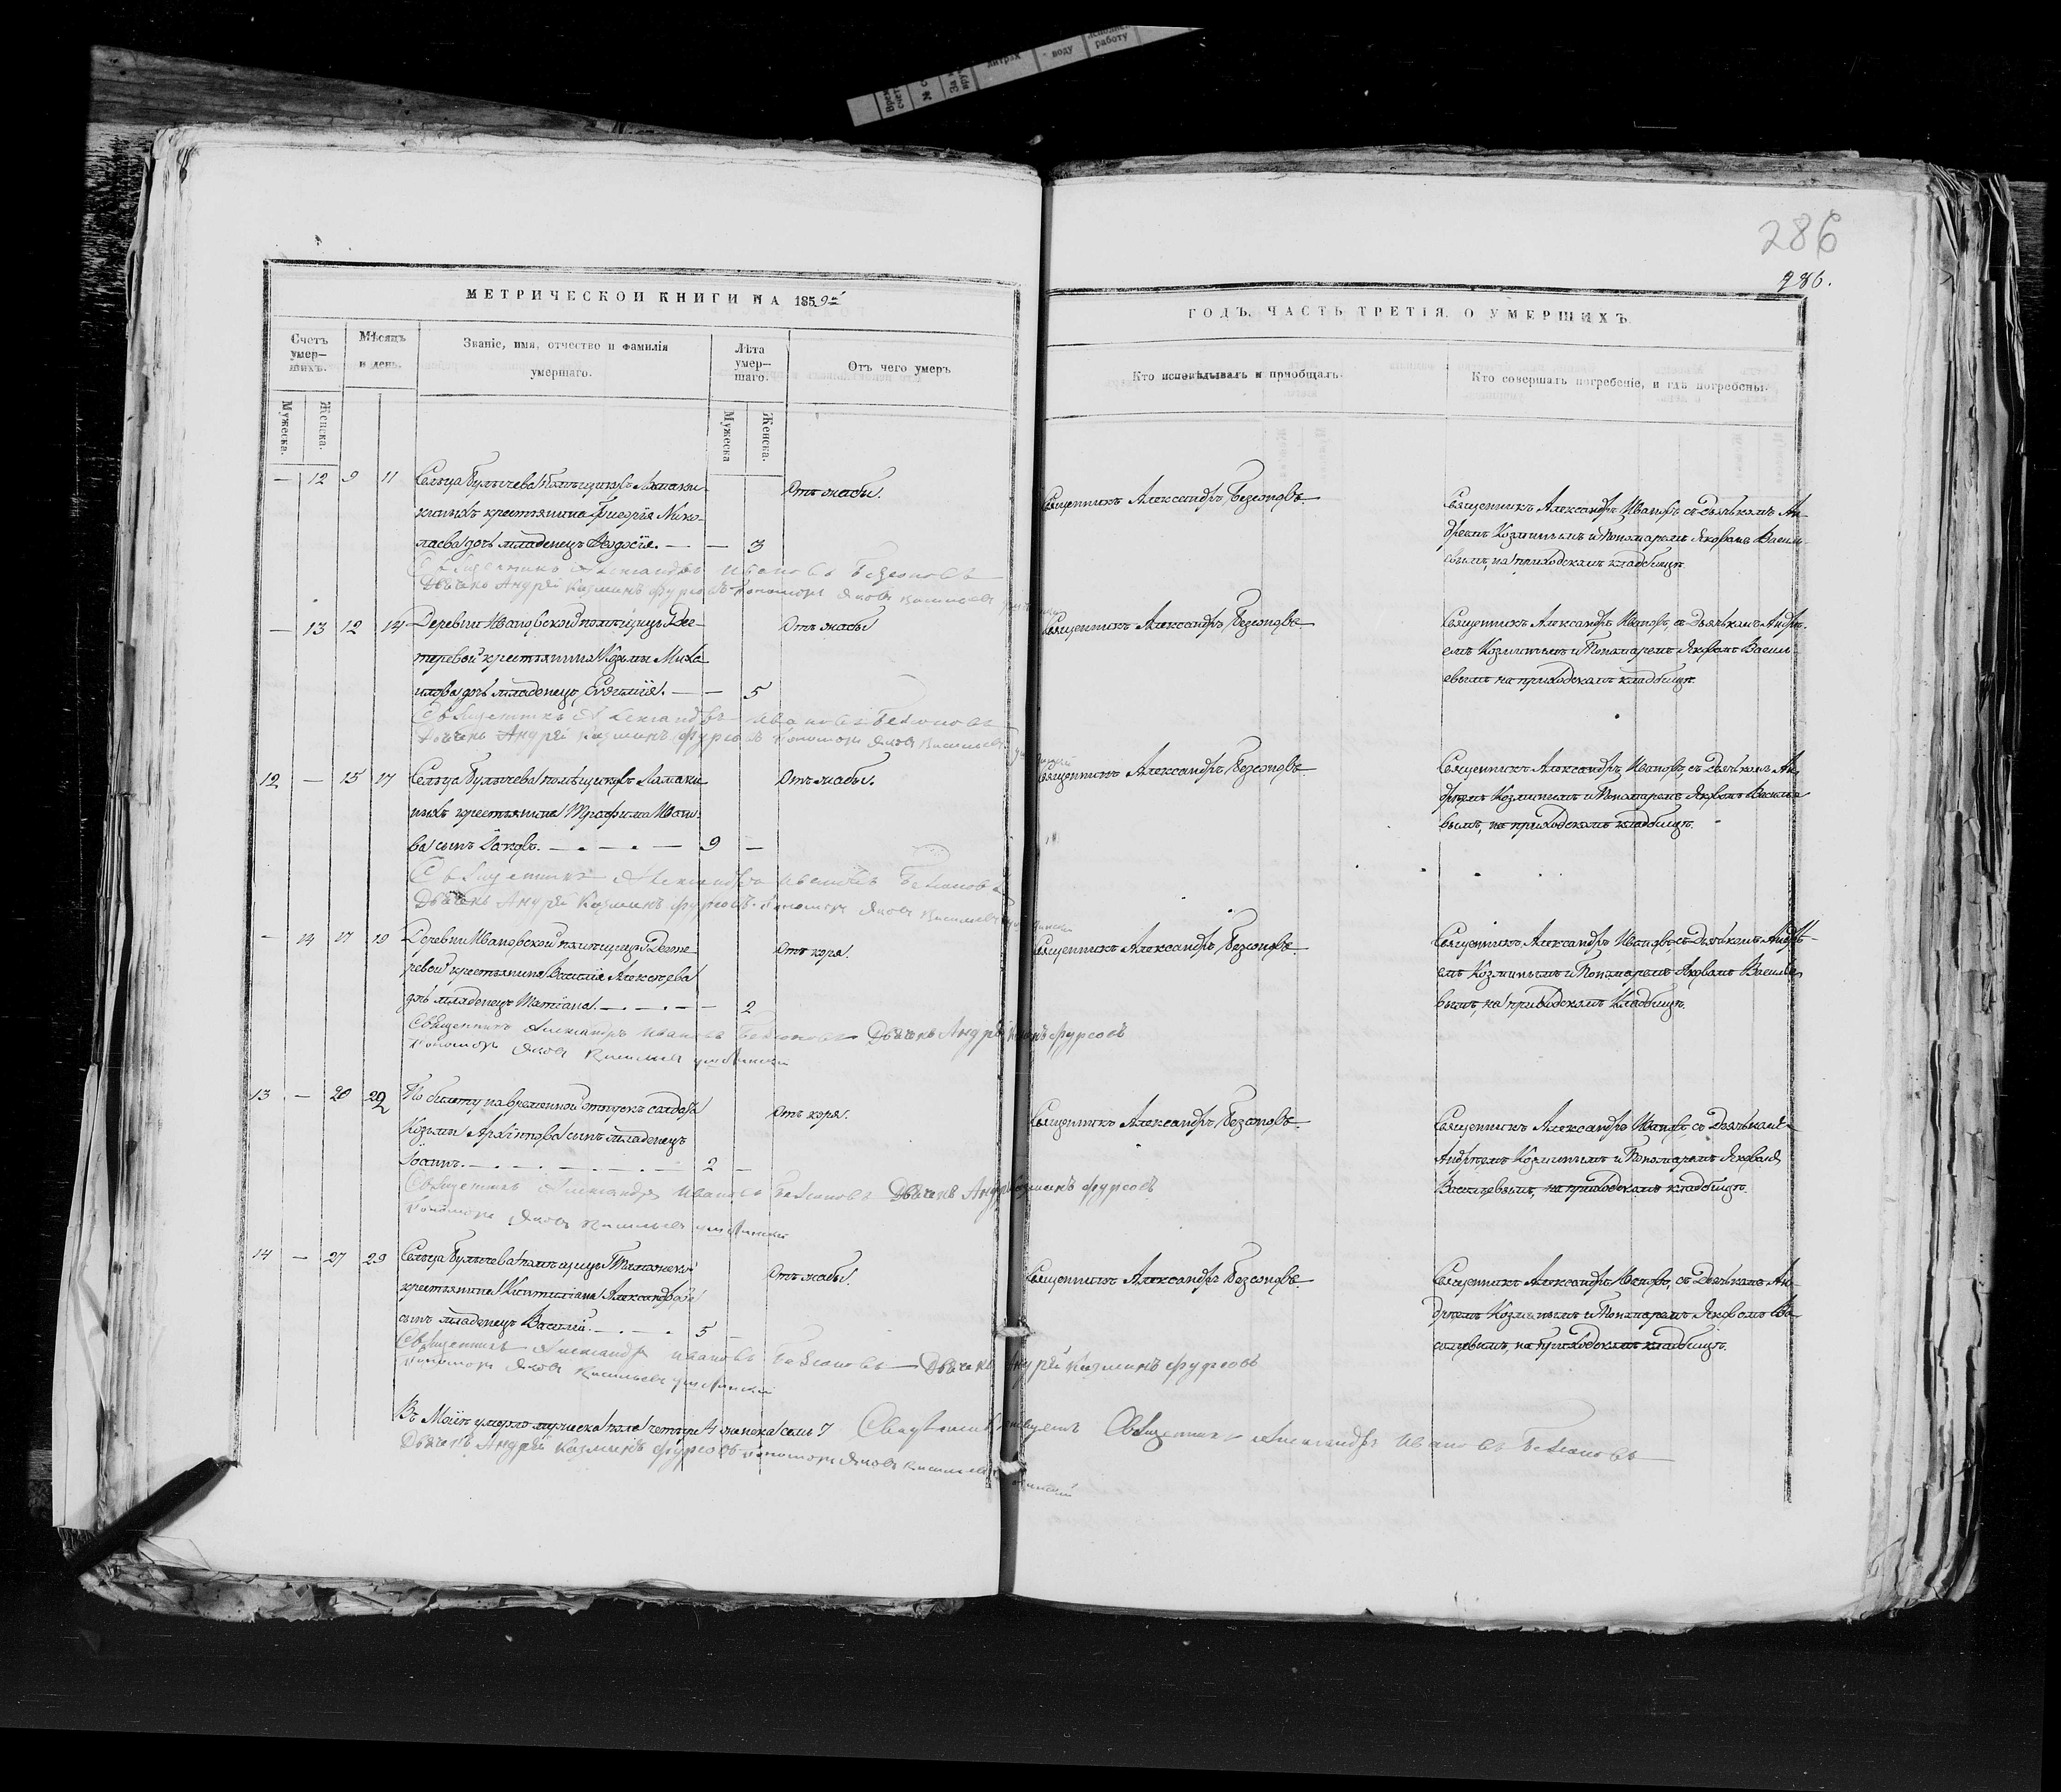 286
286.
МЕТРИЧЕСКОЙ КНИГИ НА 1859й
ГОДЪ. ЧАСТЬ ТРЕТІЯ. О УМЕРШИХЪ.
Счетъ умер–шихъ.
Мѣсяцъ и день.
Званіе, имя, отчество и фамилія умершаго.
Лѣта умер–шаго.
Отъ чего умеръ
Кто исповѣдывалъ и пріобщалъ.
Кто совершалъ погребеніе, и гдѣ погребены.
Мужеска.
Женска.
Мужеска
Женска.
— 12 9 11 Сельца Булычева помѣщиковъ Ламаки-
ныхъ крестьянина Нико-
лаева дочь младенецъ Ѳеодосія. — — 3
Отъ жабы.
Священникъ Александръ Безсоновъ
Священникъ Александръ Ивановъ съ Дьячкомъ Ан-
дреемъ Козминымъ и Пономаремъ Яковомъ Василь-
евымъ, на приходскомъ кладбищѣ.
Священникъ Александръ Ивановъ Безсоновъ
Дьячекъ Андрей Козминъ Фурсовъ Пономарь Яковъ Васильевъ
— 13 12 14 Деревни Ивановской помѣщицы Дег-
теревой крестьянина Козмы Миха-
илова дочь младенецъ Евѳимія. — — 5
Отъ жабы
Священникъ Александръ Безсоновъ
Священникъ Александръ Ивановъ, съ Дьячкомъ Андре-
емъ Козминымъ и Пономаремъ Яковомъ Василь-
евымъ на приходскомъ кладбищѣ.
Священникъ Александръ Ивановъ Безсоновъ
Дьячекъ Андрей Козминъ Фурсовъ Пономарь Яковъ Васильевъ
12 — 15 17 Сельца Булычева помѣщиковъ Ламаки-
ныхъ крестьянина Трофима Ивано-
ва сынъ Іаковъ. — 9 —
Отъ жабы.
Священникъ Александръ Безсоновъ.
Священникъ Александръ Ивановъ съ Дьячкомъ Ан-
дреемъ Козминымъ и Пономаремъ Яковомъ Василье-
вымъ, на приходскомъ кладбищѣ.
Священникъ Александръ Ивановъ Безсоновъ
Дьячекъ Андрей Козминъ Фурсовъ. Пономарь Яковъ Васильевъ
— 14 17 19 Деревни Ивановской помѣщицы Дегте-
ревой крестьянина Василія Алексѣева
дочь младенецъ Татіана. — — 2
Отъ коря.
Священникъ Александръ Безсоновъ.
Священникъ Александръ Ивановъ, съ Дьячкомъ Андре-
емъ Козминымъ и Пономаремъ Яковомъ Василье-
вымъ, на приходскомъ кладбищѣ.
Священникъ Александръ Ивановъ Безсоновъ Дьячекъ Андрей Фурсовъ
Пономарь Яковъ Васильевъ
13 — 20 22 По билету на временной отпускъ солдата
Козьмы Архипова сынъ младенецъ
Іоаннъ. — 2 —
Отъ коря.
Священникъ Александръ Безсоновъ
Священникъ Александръ Ивановъ, съ Дьячкомъ
Андреемъ Козминымъ и Пономаремъ Яковомъ
Васильевымъ, на приходскомъ кладбищѣ.
Священникъ Александръ Ивановъ Безсоновъ Дьячекъ Андрей Козминъ Фурсовъ
Пономарь Яковъ Васильевъ
14 — 27 29 Сельца Булычева помѣщицы
крестьянина Александрова
сынъ младенецъ Василій. — 5 —
Отъ жабы.
Священникъ Александръ Безсоновъ.
Священникъ Александръ Ивановъ, съ Дьячкомъ Ан-
дреемъ Козминымъ и Пономаремъ Яковомъ Ва-
сильевымъ, на приходскомъ кладбищѣ.
Священникъ Александръ Ивановъ Безсоновъ Дьячекъ Андрей Козминъ Фурсовъ
Пономарь Яковъ Васильевъ
Въ Маіѣ умерло мужеска пола четыре 4 женска семь 7 Священникъ Александръ Ивановъ Безсоновъ
Дьячекъ Андрей Козминъ Фурсовъ Пономарь Яковъ Васильевъ